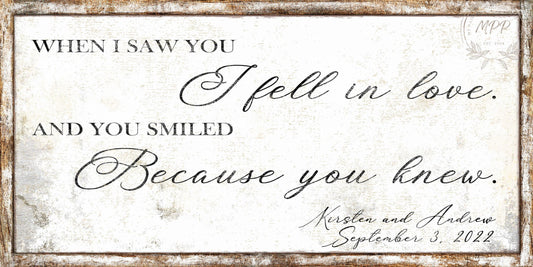 MPP
WHEN I SAW YOU
I fell in love.
AND YOU SMILED
Because you knew.
Kirsten and Andrew
September 3, 2022